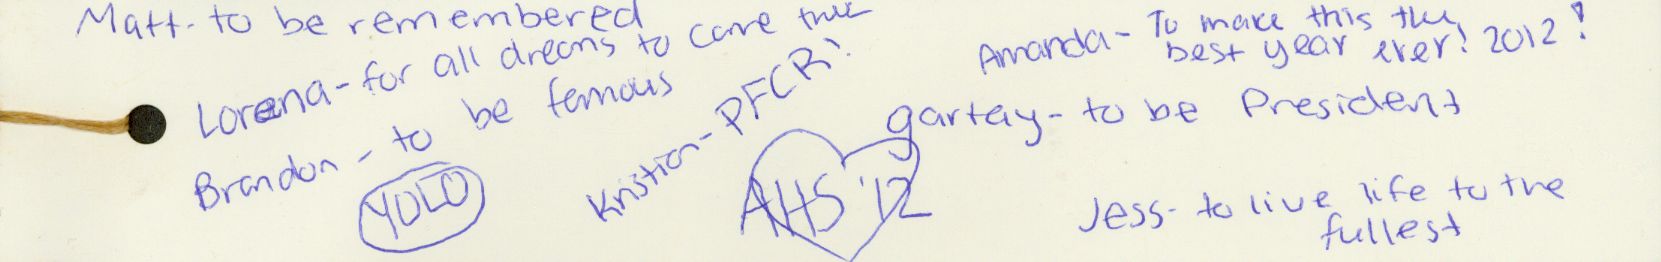 Matt- to be remembered
Lorena- for all dreams to come true
Brandon - to be famous
YOLO
Kristian- PFCR!
AHS '12
Amanda- To make this the
best year ever! 2012!
gartay- to be President
Jess- to live life to the
fullest